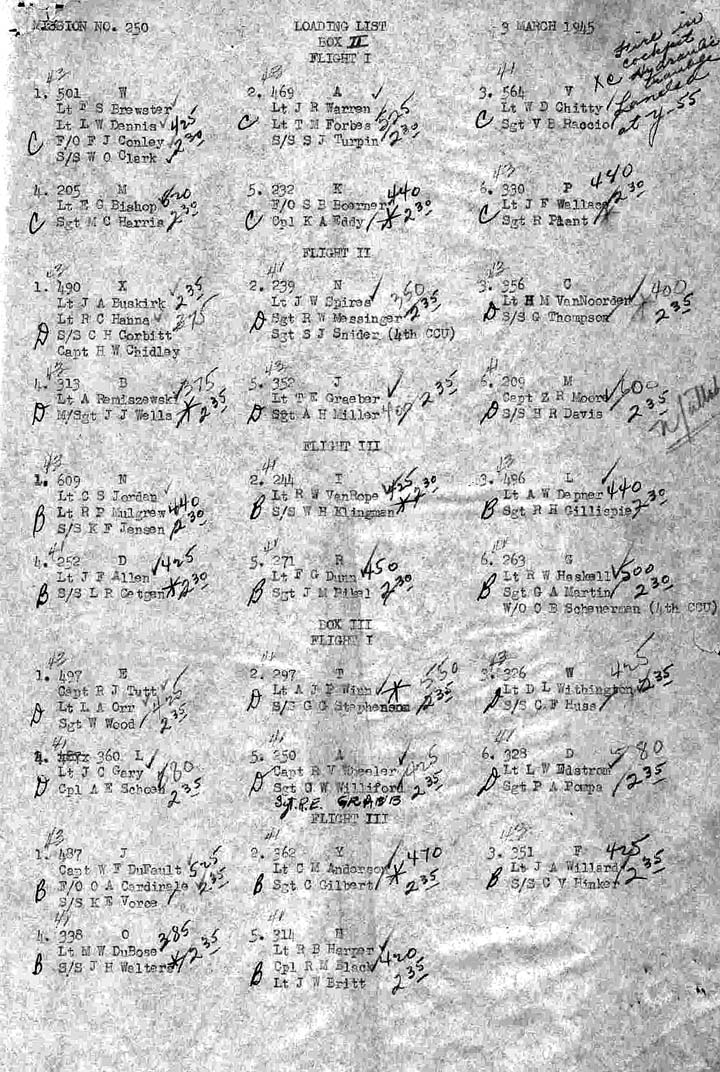 MISSION NO. 250 LOADING LIST 3 MARCH 1945
BOX II
FLIGHT I
Fire in
cockpit
XC Hydraulic
trouble
Landed
at Y-55
43 43 41
1. 501 W 2. 469 A 3. 564 V
Lt F S Brewster Lt J R Warren Lt W D Chitty
Lt L W Dennis 425 Lt T M Forbes 525 C Sgt V B Raccio
C F/O F J Conley 230 C S/S S J Turpin 230
S/S W O Clark
43
4. 205 M 5. 232 K 6. 330 P 440
Lt E G Bishop 620 F/O S B Boerner 440 Lt J F Wallace 230
C Sgt M C Harris 230 C Cpl K A Eddy 230 C Sgt R Plant
FLIGHT II
43 41 43
1. 490 X 2. 239 N 3. 356 C
Lt J A Buskirk 235 Lt J W Spires 350 Lt H M VanNoorden 400
Lt R C Hanna 375 D Sgt R W Messinger 235 D S/S G Thompson 235
D S/S C H Corbitt Sgt S J Snider (4th CCU)
Capt H W Chidley
43 43 41
4. 313 B 5. 352 J 6. 209 M
Lt A Remiszewski 375 Lt T E Graeber 235 Capt Z R Moore 600
D M/Sgt J J Wells 235 D Sgt A H Miller 400 D S/S H R Davis 235
FLIGHT III
43 41 43
1. 609 N 2. 244 I 3. 486 L
Lt C S Jordan Lt R W VanRope 425 Lt A W Depner 440
B Lt R P Mulgrew 440 B S/S W H Klingman 230 B Sgt R H Gillispie 230
S/S K F Jensen 230
41 41
4. 252 D 425 5. 271 R 6. 263 G
Lt J F Allen Lt F G Dunn 450 Lt R W Haskell 500
B S/S L R Oetgen 230 B Sgt J M Bikal 230 B Sgt G A Martin 230
W/O C B Scheuerman (4th CCU)
BOX III
FLIGHT I
43 41 43
1. 497 E 2. 297 T 3. 326 W 425
Capt R J Tutt Lt A J P Winn 550 Lt D L Withington 235
D Lt L A Orr 425 D S/S G G Stephenson 235 D S/S C F Huss
Sgt W Wood 235
41 41
4. 360 L 5. 250 A 6. 328 D 580
Lt J C Gary 680 Capt R V Wheeler 425 Lt L W Edstrom
D Cpl A E Schoen 235 D Sgt C W Williford 235 D Sgt P A Pompa 235
Sgt. P.E. GRABB
FLIGHT III
43 41 43
1. 487 J 2. 362 Y 470 3. 351 F 425
Capt W F DuFault 525 Lt C M Anderson Lt J A Willard 235
B F/O O A Cardinale 235 B Sgt C Gilbert 235 B S/S C V Hinker
S/S K E Vorce
41 41
4. 338 O 385 5. 314 H
Lt M W DuBose 235 Lt R B Harper
B S/S J H Walters B Cpl R M Black 420
Lt J W Britt 235